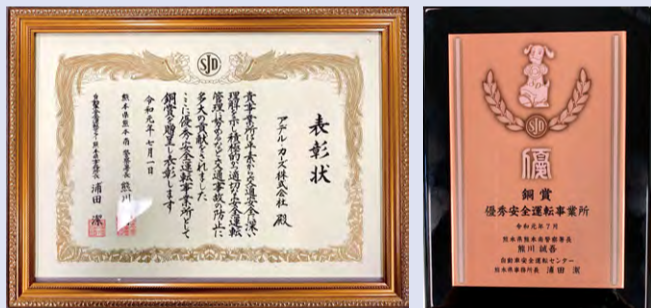 SJD
表彰状
アデル・カーズ株式会社 殿
貴事業所は平素から交通安全に深い
理解を示し積極的に適切な安全運転
管理に努めるなど交通事故の防止に
多大の貢献をされました
ここに優秀安全運転事業所として
銅賞を贈呈し表彰します
令和元年七月一日
熊本県熊本南警察署長 熊川
自動車安全運転センター熊本県事務所長 浦田 潔
SJD
優
銅賞
優秀安全運転事業所
令和元年7月
熊本県熊本南警察署長
熊川 誠吾
自動車安全運転センター
熊本県事務所長 浦田 潔